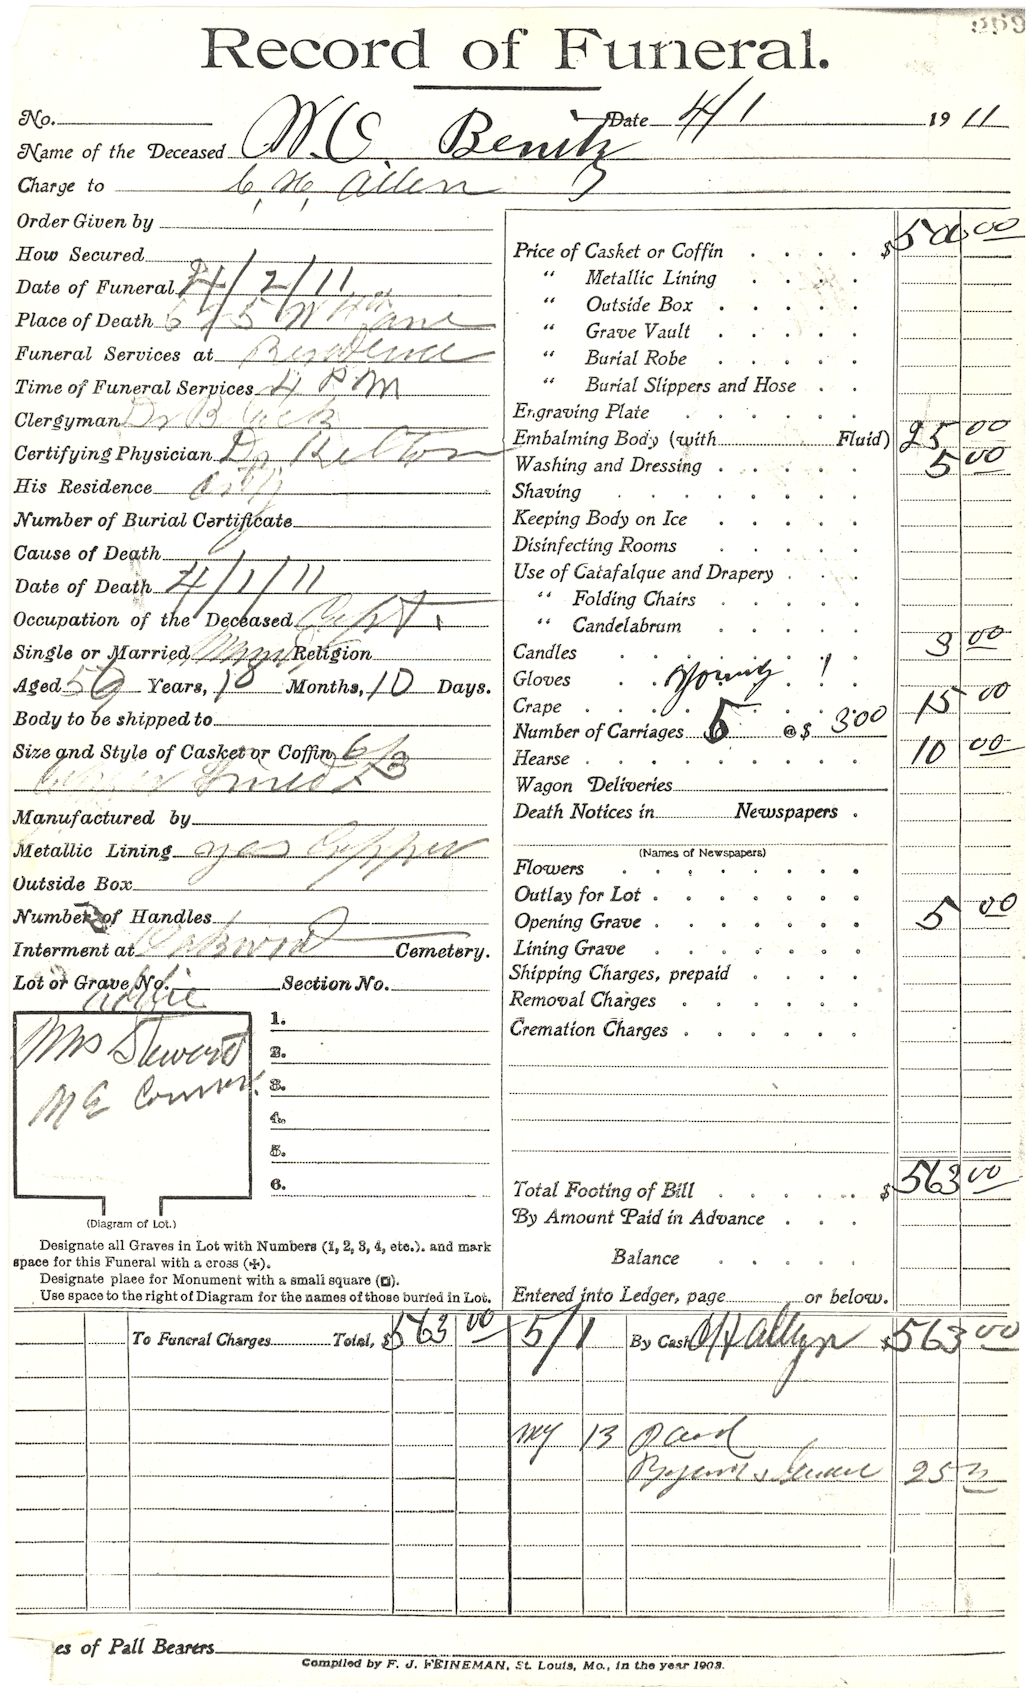 Record of Funeral.
No. Date 4/1 1911
Name of the Deceased W. O. Benitz
Charge to C. H. Allen
Order Given by
How Secured
Date of Funeral 4/2/11
Place of Death
Funeral Services at Residence
Time of Funeral Services 4 PM
Clergyman Dr
Certifying Physician Dr.
His Residence City
Number of Burial Certificate
Cause of Death
Date of Death 4/1/11
Occupation of the Deceased Capt.
Single or Married Religion
Aged Years, 10 Months, 10 Days.
Body to be shipped to
Size and Style of Casket or Coffin 6/3
Copper Lined
Manufactured by
Metallic Lining yes Copper
Outside Box
Number of Handles
Interment at Oakwood Cemetery.
Lot or Grave No. Section No.
Mrs Steward
1.
2.
3.
4.
5.
6.
(Diagram of Lot.)
Designate all Graves in Lot with Numbers (1, 2, 3, 4, etc.). and mark
space for this Funeral with a cross (✠).
Designate place for Monument with a small square (◘).
Use space to the right of Diagram for the names of those buried in Lot.
Price of Casket or Coffin . . . . $500 00
“ Metallic Lining . . . .
“ Outside Box . . . . .
“ Grave Vault . . . . .
“ Burial Robe . . . . .
“ Burial Slippers and Hose . .
Engraving Plate . . . . . .
Embalming Body (with Fluid) 25 00
Washing and Dressing . . . . . 5 00
Shaving . . . . . . .
Keeping Body on Ice . . . . .
Disinfecting Rooms . . . . .
Use of Catafalque and Drapery . . .
“ Folding Chairs . . . . .
“ Candelabrum . . . . .
Candles . . . . . . . 3 00
Gloves . . . . . . .
Crape . . . . . . . .
Number of Carriages 5 @ $ 3 00 15 00
Hearse . . . . . . . . 10 00
Wagon Deliveries
Death Notices in Newspapers .
(Names of Newspapers)
Flowers . . . . . . .
Outlay for Lot . . . . . . .
Opening Grave . . . . . . . 5 00
Lining Grave . . . . . .
Shipping Charges, prepaid . . . .
Removal Charges . . . . . .
Cremation Charges . . . . . .
Total Footing of Bill . . . . . $563 00
By Amount Paid in Advance . . .
Balance . . . . .
Entered into Ledger, page or below.
To Funeral Charges Total, $563 00 5/1 By Cash $563 00
My 13 Paid
25
es of Pall Bearers
Compiled by F. J. FEINEMAN, St. Louis, Mo., in the year 1903.